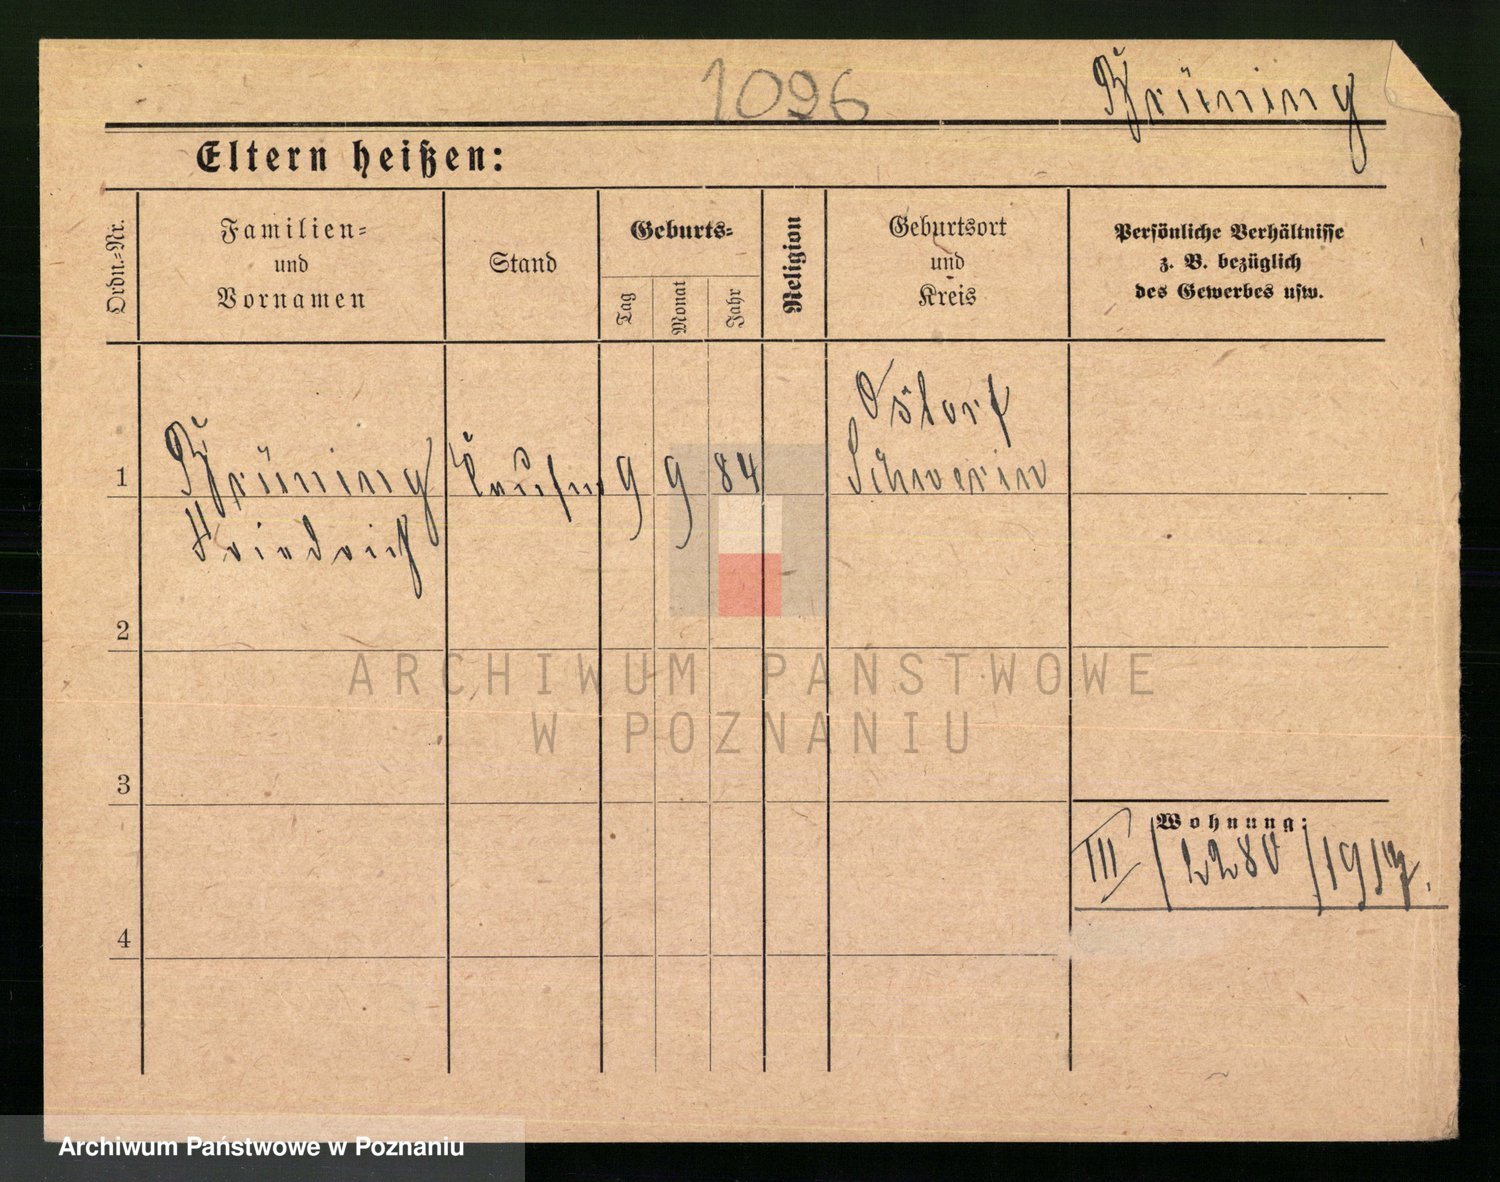 1096
Brüning
Eltern heißen:
Ordn.=Nr.
Familien=
und
Vornamen
Stand
Geburts=
Tag
Monat
Jahr
Religion
Geburtsort
und
Kreis
Persönliche Verhältnisse
z. B. bezüglich
des Gewerbes usw.
1
Brüning
Friedrich
Kaufm
9 9 84
Ostorf
Schwerin
2
3
4
Wohnung:
III / 2280 / 1917.
ARCHIWUM PAŃSTWOWE
W POZNANIU
Archiwum Państwowe w Poznaniu